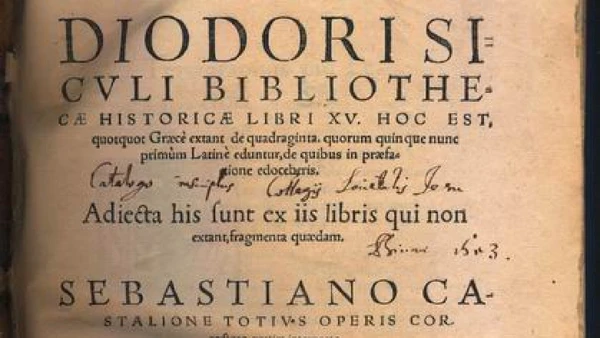 DIODORI SI=
CVLI BIBLIOTHE-
CÆ HISTORICÆ LIBRI XV. HOC EST,
quotquot Græcè extant de quadraginta. quorum quinque nunc
primùm Latinè eduntur, de quibus in præfa-
tione edoceberis.
Catalogo inscriptus Collegii Societatis Jesu
Adiecta his sunt ex iis libris qui non
extant, fragmenta quædam.
1603.
SEBASTIANO CA-
STALIONE TOTIVS OPERIS COR-